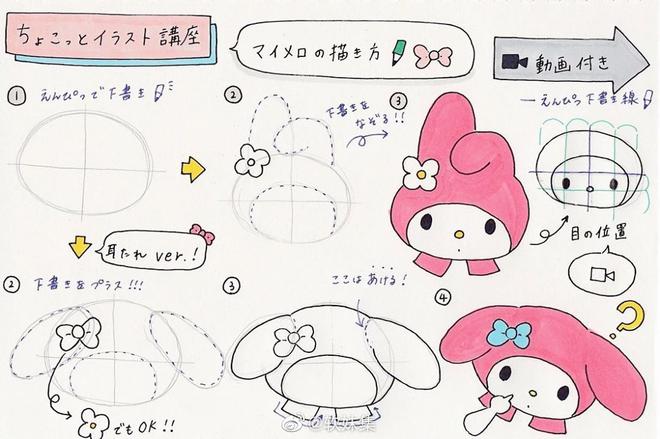 ちょこっとイラスト講座
マイメロの描き方
動画付き
① えんぴつで下書き
②
下書きを
なぞる!!
③
えんぴつ下書き線
目の位置
耳たれ ver.!
② 下書きをプラス!!!
でもOK!!
③
ここはあける!
④
@软妹集